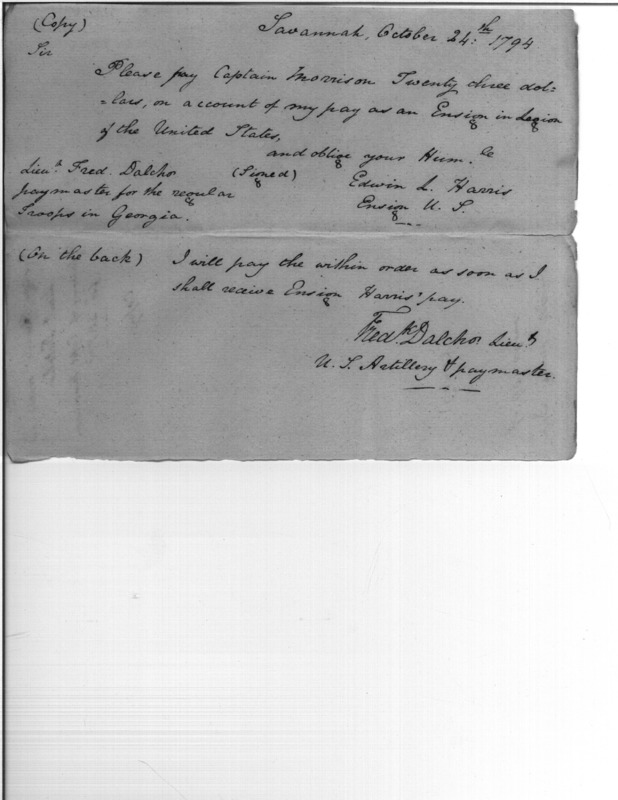 (Copy)
Savannah, October 24:th 1794
Sir
Please pay Captain Morrison Twenty three dol-
-lars, on account of my pay as an Ensign in Legion
of the United States,
and oblige your Hum.le
Lieu.t Fred. Dalcho (Signed) Edwin L. Harris
paymaster for the regular Ensign U. S.
Troops in Georgia.
(On the back) I will pay the within order as soon as I
shall recive Ensign Harris' pay.
Fred.k Dalcho Lieu.t
U. S. Artillery & paymaster.